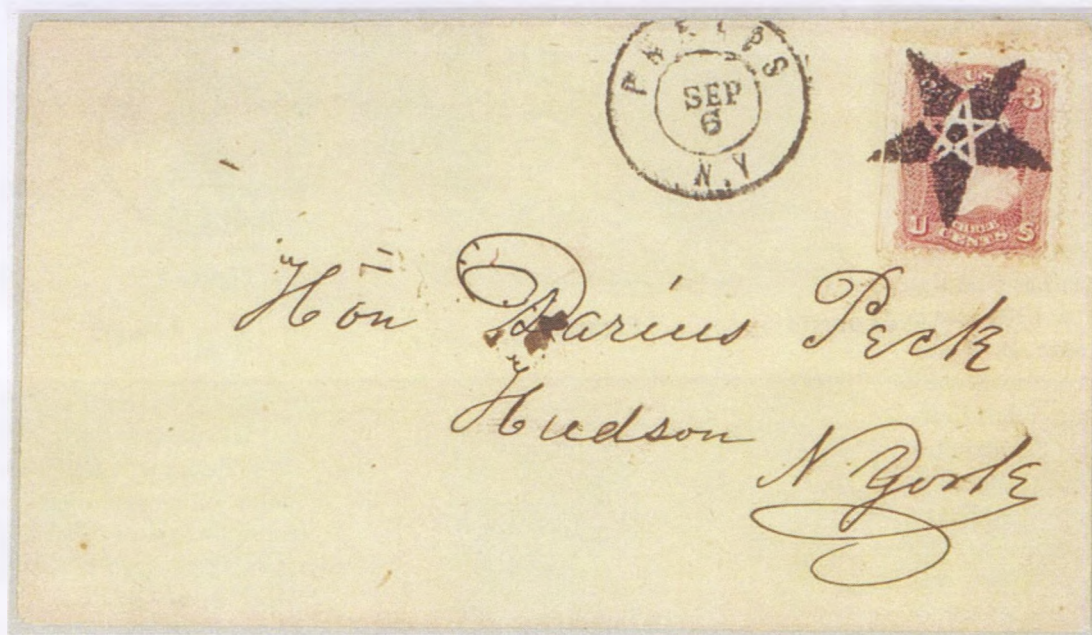 PHELPS
SEP
6
N.Y
U.S. 3
U THREE CENTS S
Hon Darius Peck
Hudson
N York